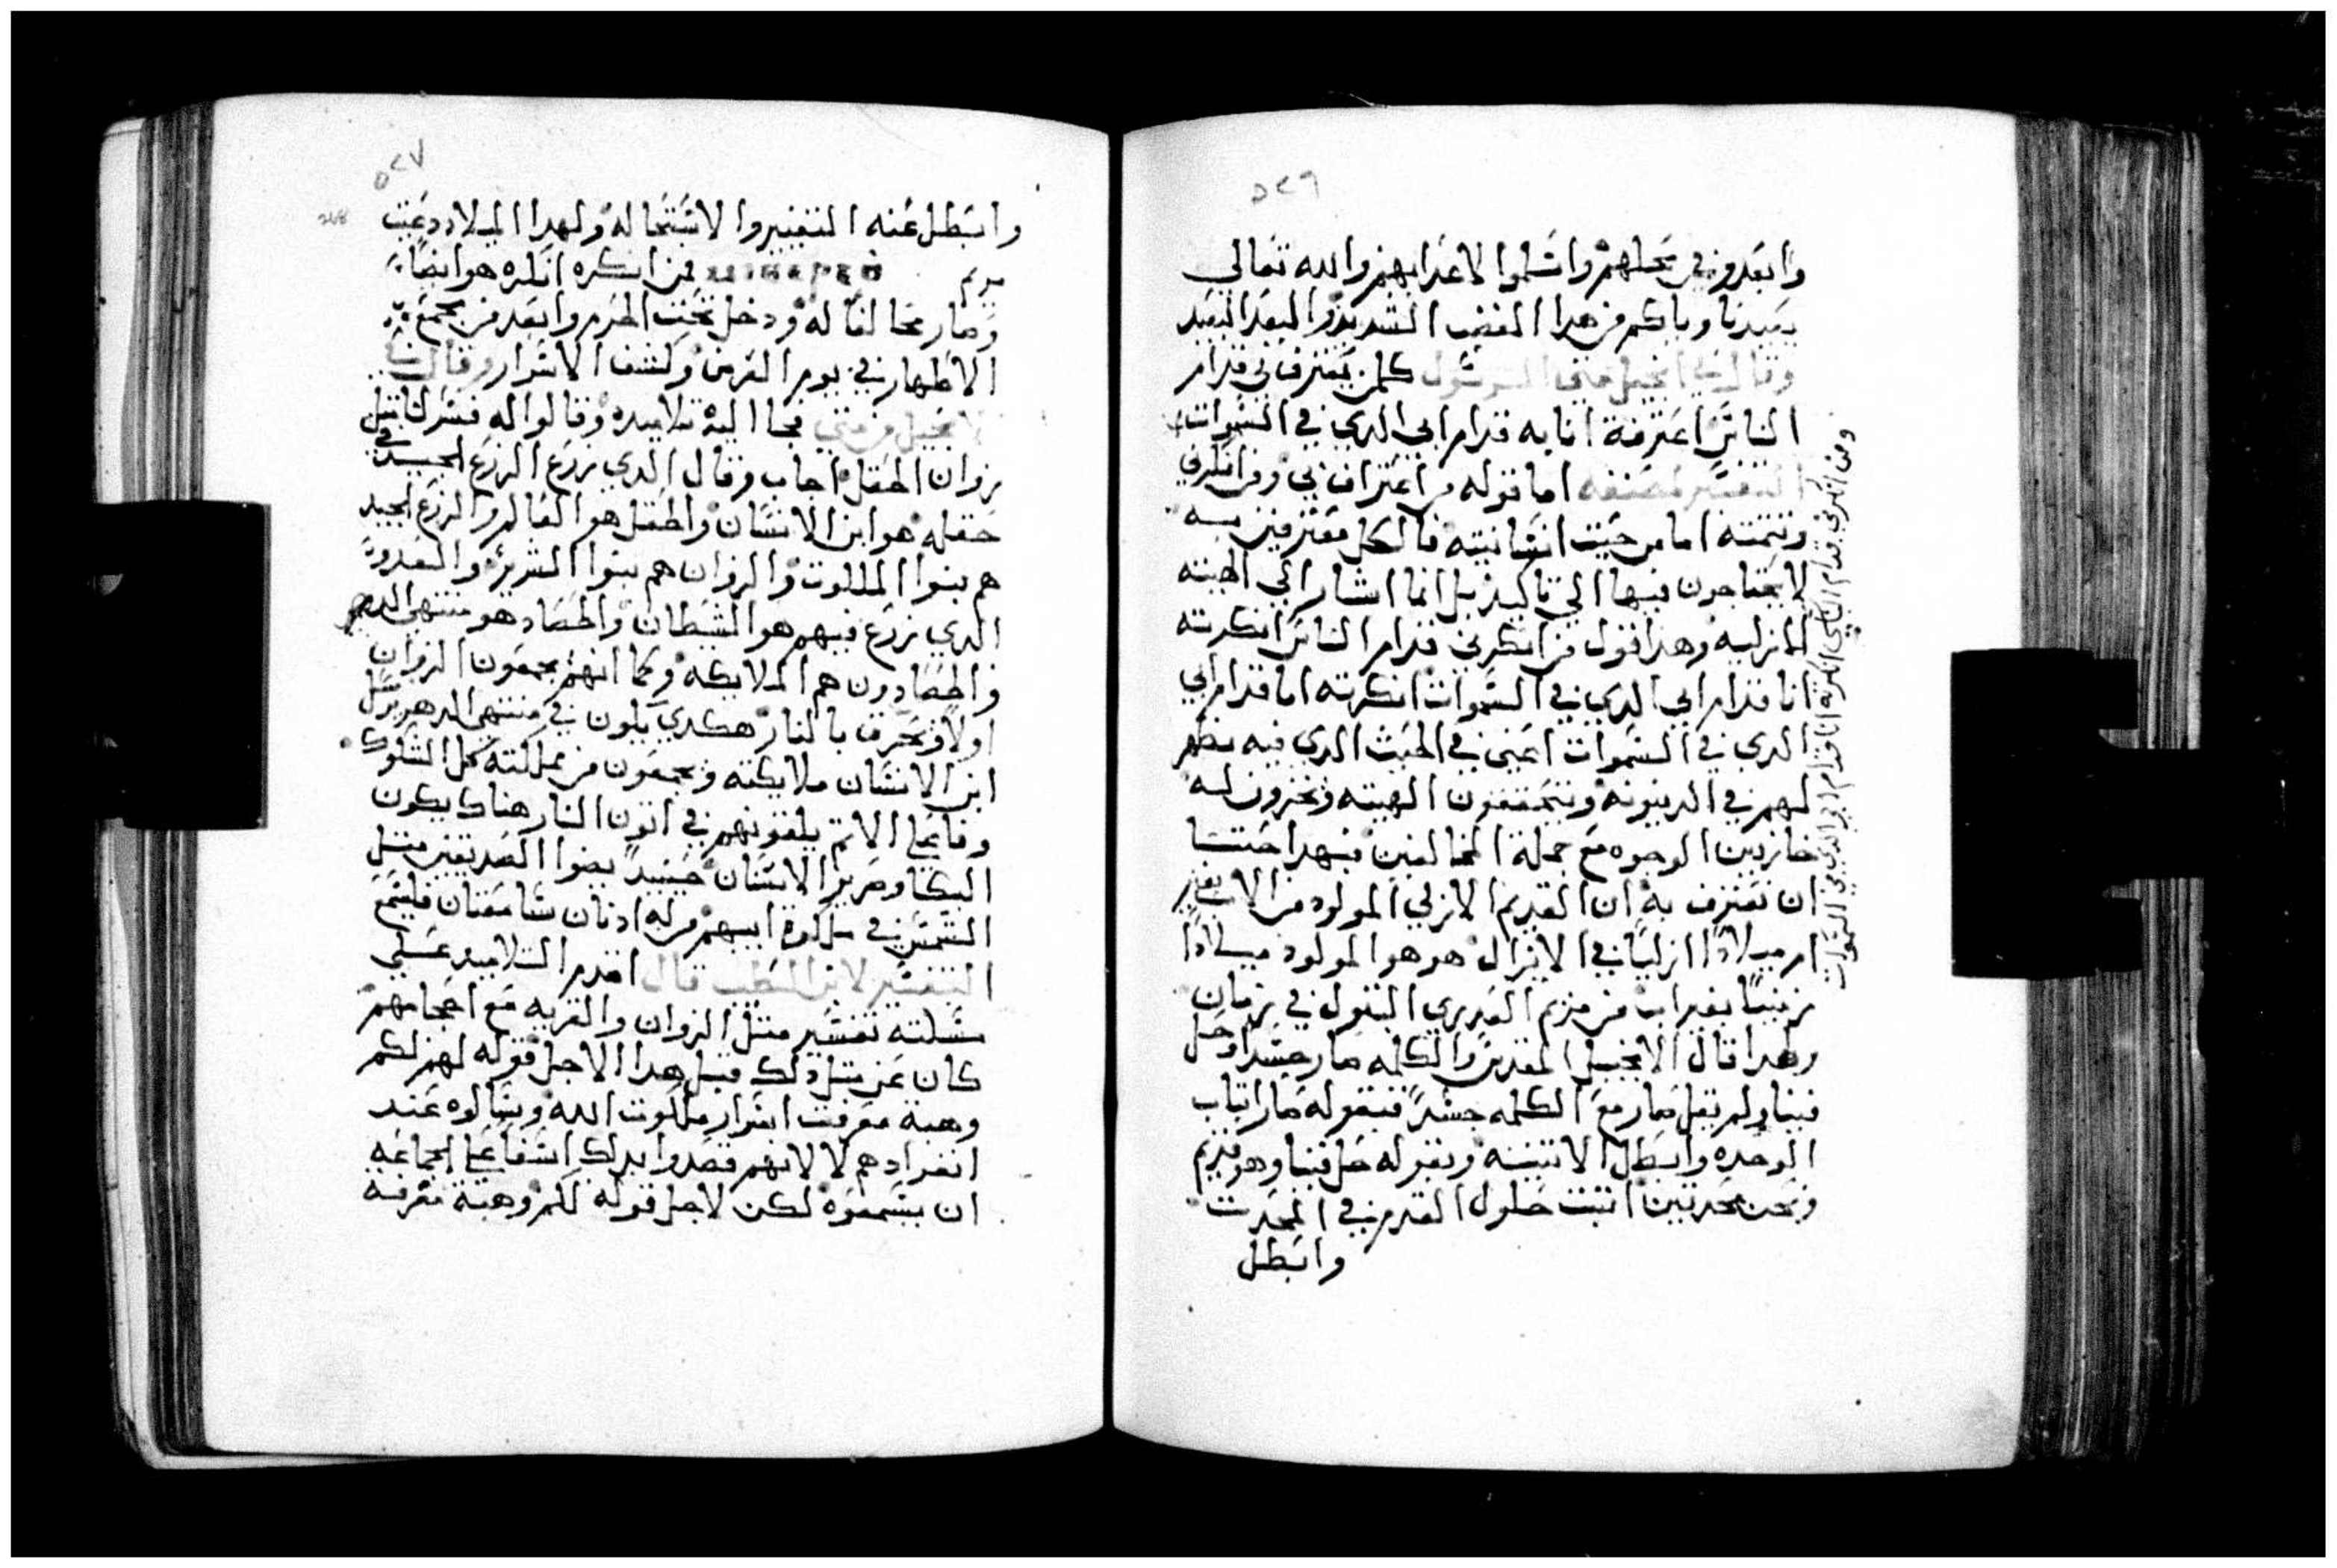 ٥٢٦
وابعدو في محلهم واسلموا لاعدايهم والله تعالي
يعيدنا وياكم من هدا الغضب الشديد والبعد البعيد
وقال في انجيل متي الرسول كلمن يعترف بي قدام
الناس اعترفة انا به قدام ابي الدي في السموات
التفسير لمصنفه اما قوله من اعتراف بي ومن انكرني
وتتمته اما من حيت انسانيته فالكل معترفين به
لا يحتاجون فيها الي تاكيد بل انما اشار الي الهيته
الازليه وهدا قول من انكرني قدام الناس انكرته
انا قدام ابي الدي في السموات انكرته انا قدام ابي
الدي في السموات اعني في الحيت الدي فيه يظهر
لهم في الدينونه ويتحققون الهيته ويخرون له
خازيين الوجوه مع جملة المخالفين فبهدا حتنا
ان نعترف به ان القديم الازلي المولود من الاب بغير
ام ميلادًا ازليًا في الازال هو هو المولود ميلادًا
زمنيًا بغير اب من مريم العدري البتول في زمان
ولهدا قال الانجيل المقدس والكلمه صار جسدًا وحل
فينا ولم يقل صار مع الكلمه جسدًا فبقوله صار اتبات
الوحده وابطل الاتنينه وبقوله حل فينا وهو قديم
ونحن محدتين اتبت حلول القدم في المحدت
وابطل
ومن انكرني قدام الناس انكرته انا قدام ابي الدي في السموات
٥٢٧
268
وابطل عنه التغيير والاستحاله ولهدا الميلاد دعيت
مريم فمن انكره انكره هو ايضًا
وصار مخالفًا له ودخل تحت الحرم وابعد من مجمع
الاطهار في يوم العرض وكشف الاسرار وقال
الانجيل من متي فجا اليه تلاميده وقالوا له فسر لنا متل
زوان الحقل اجاب وقال الدي زرع الزرع الجيد في
حقله هو ابن الانسان والحقل هو العالم والزرع الجيد
هم بنوا الملكوت والزوان هم بنوا الشرير والعدو
الدي زرع فيهم هو الشيطان والحصاد هو منتهي الدهر
والحصادون هم الملايكه وكما انهم يجمعون الزوان
اولا ويحرق بالنار هكدي يكون في منتهي الدهر يرسل
ابن الانسان ملايكته ويجمعون من مملكته كل الشكوك
وفاعلي الاتم يلقونهم في اتون النار هناك يكون
البكا وصرير الاسنان حينيد يضوا الصديقين متل
الشمس في ملكوت ابيهم من له ادنان سامعتان فليسمع
التفسير لابن الطيب قال اقدم التلاميد علي
مسلته تفسير متل الزوان والقريه مع احجامهم
كان عن متل دلك قبل هدا الاجل قوله لهم لكم
وهبة معرفت اسرار ملكوت الله وسالوه عند
انفرادهم لا لانهم قصدوا بدلك اسفا علي الجماعه
ان يسمعوه لكن لاجل قوله لكم وهبة معرفة